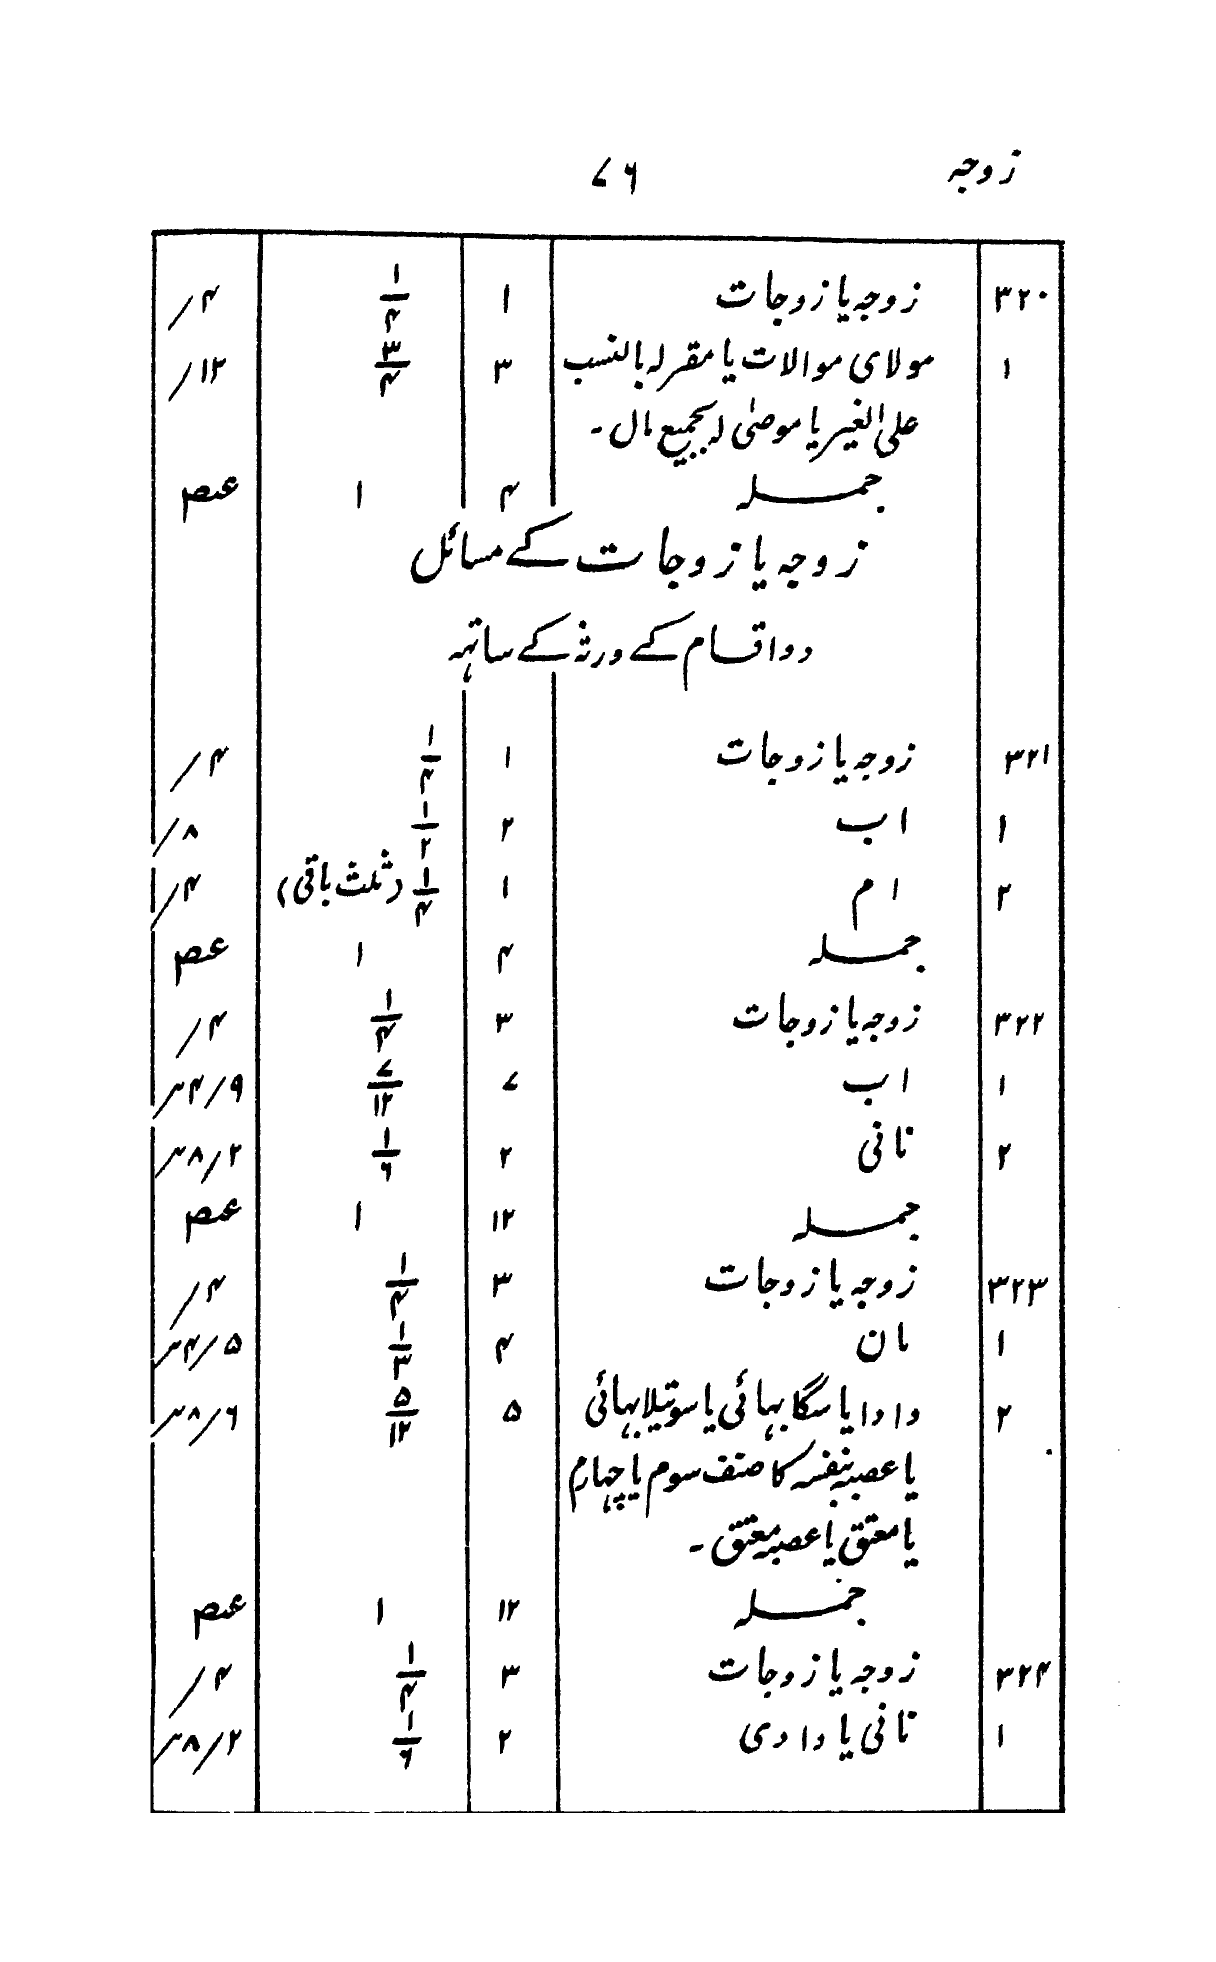 زوجہ ۷۶
۳۲۰ زوجہ یا زوجات ۱ ۱/۴ ۴/
۱ مولای موالات یا مقرلہ بالنسب ۳ ۳/۴ ۱۲/
علی الغیر یا موصٰی لہ بجمیع مال ۔
جملہ ۴ ۱ عہ
زوجہ یا زوجات کے مسائل
دو اقسام کے ورثہ کے ساتہہ
۳۲۱ زوجہ یا زوجات ۱ ۱/۴ ۴/
۱ اب ۲ ۱/۲ ۸/
۲ ام ۱ ۱/۴ (ثلث باقی) ۴/
جملہ ۴ ۱ عہ
۳۲۲ زوجہ یا زوجات ۳ ۱/۴ ۴/
۱ اب ۷ ۷/۱۲ ۹/۴
۲ نانی ۲ ۱/۶ ۲/۸
جملہ ۱۲ ۱ عہ
۳۲۳ زوجہ یا زوجات ۳ ۱/۴ ۴/
۱ مان ۴ ۱/۳ ۵/۴
۲ دادا یا سگا بہائی یا سوتیلا بہائی ۵ ۵/۱۲ ۶/۸
یا عصبہ بنفسہ کا صنف سوم یا چہارم
یا معتق یا عصبہ معتق ۔
جملہ ۱۲ ۱ عہ
۳۲۴ زوجہ یا زوجات ۳ ۱/۴ ۴/
۱ نانی یا دادی ۲ ۱/۶ ۲/۸